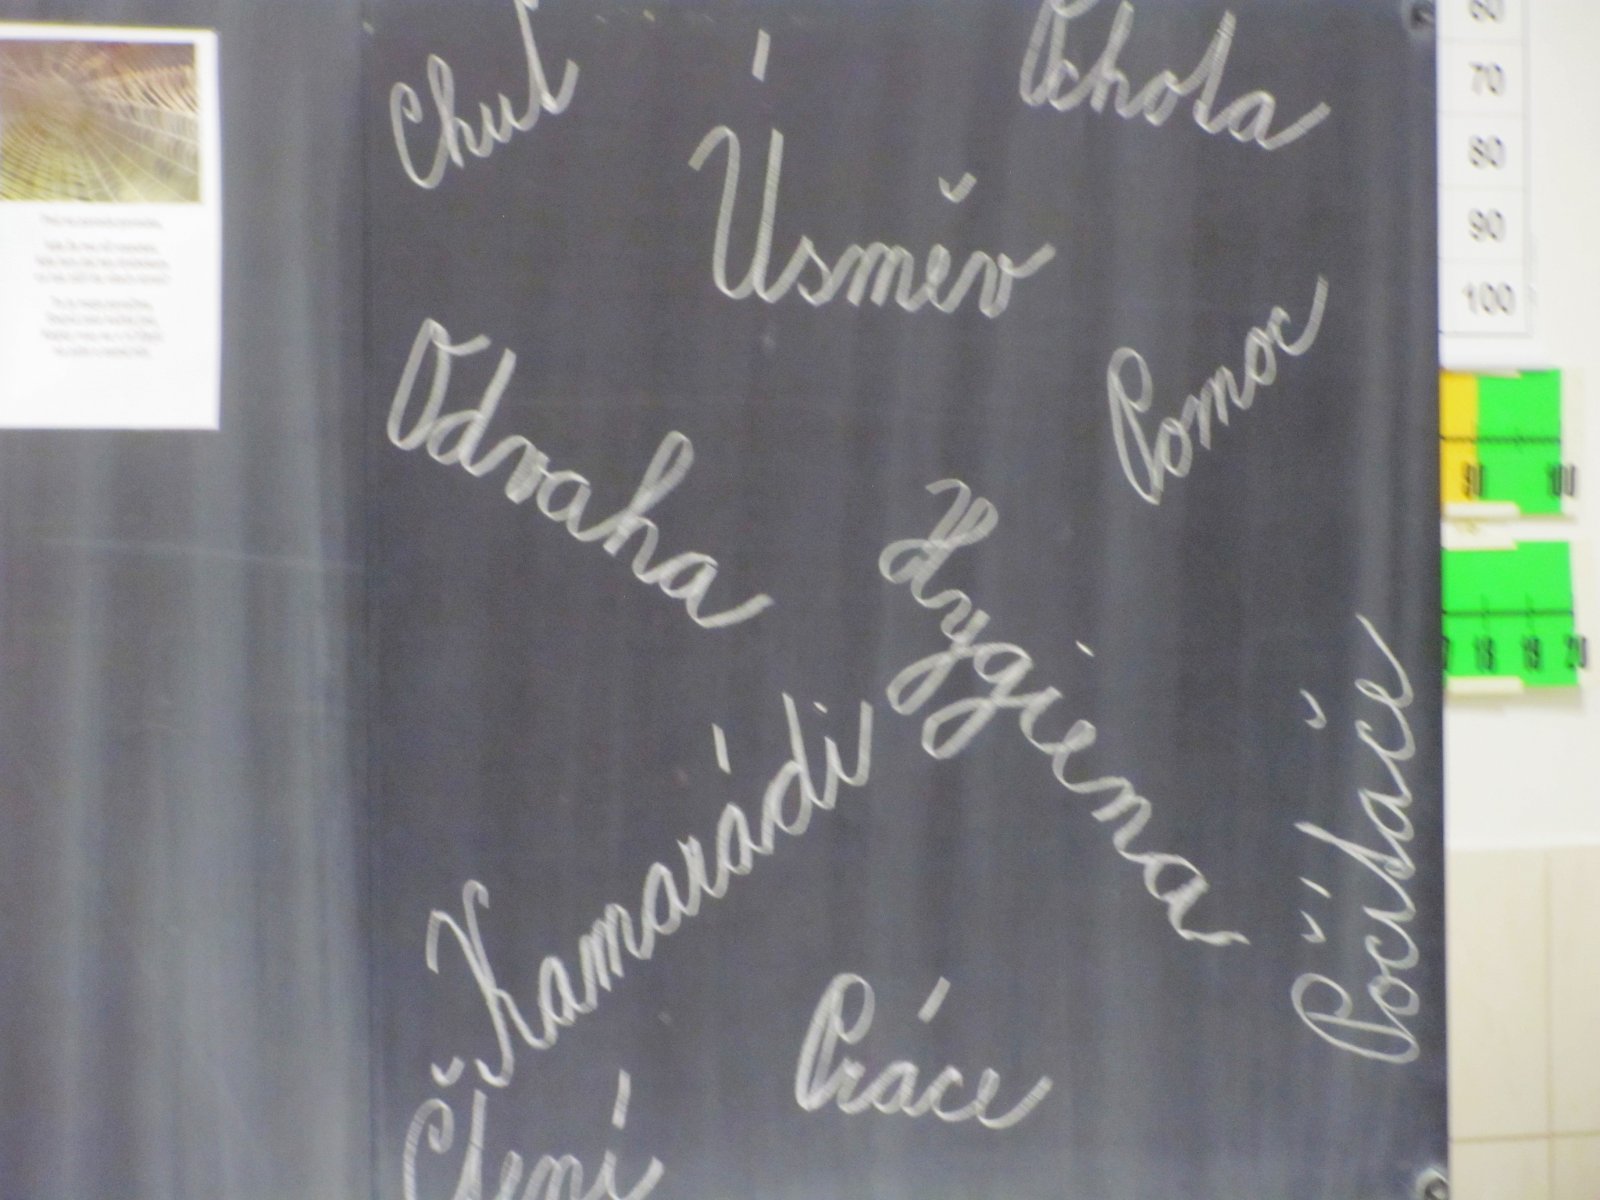 Chuť
Ochota
Úsměv
Odvaha
Pomoc
Hygiena
Kamarádi
Počítače
Práce
Čtení
60
70
80
90
100
90 100
18 19 20